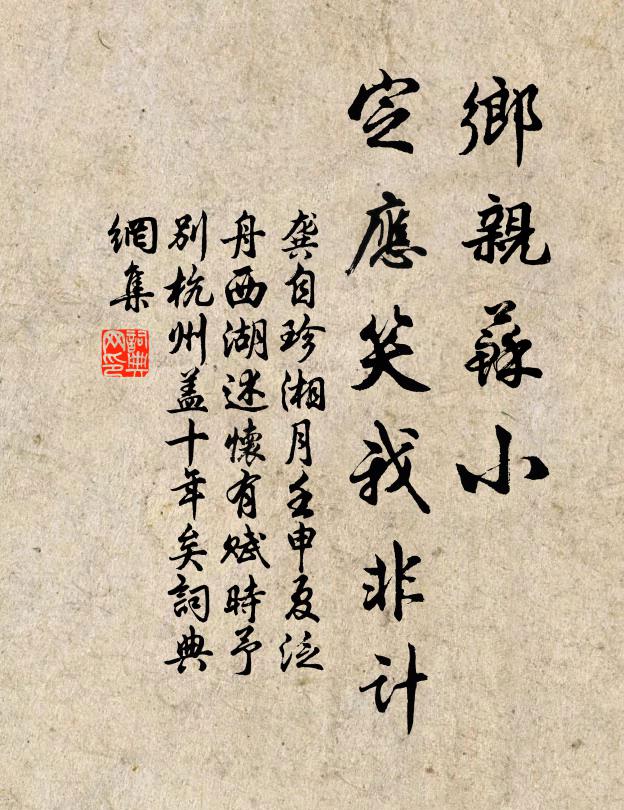 鄉親蘇小
定應笑我非計
龔自珍湘月壬申夏泛
舟西湖述懷有賦時予
別杭州蓋十年矣詞典
網集
詞典網印